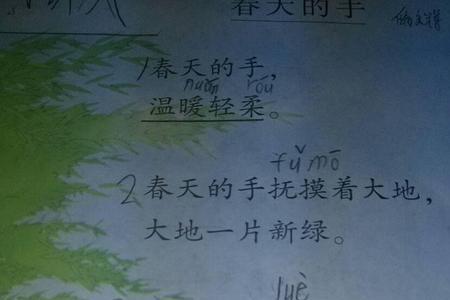 春天的手
1春天的手,
nuǎn róu
温暖轻柔。
fǔ mō
2春天的手抚摸着大地,
大地一片新绿。
yuè